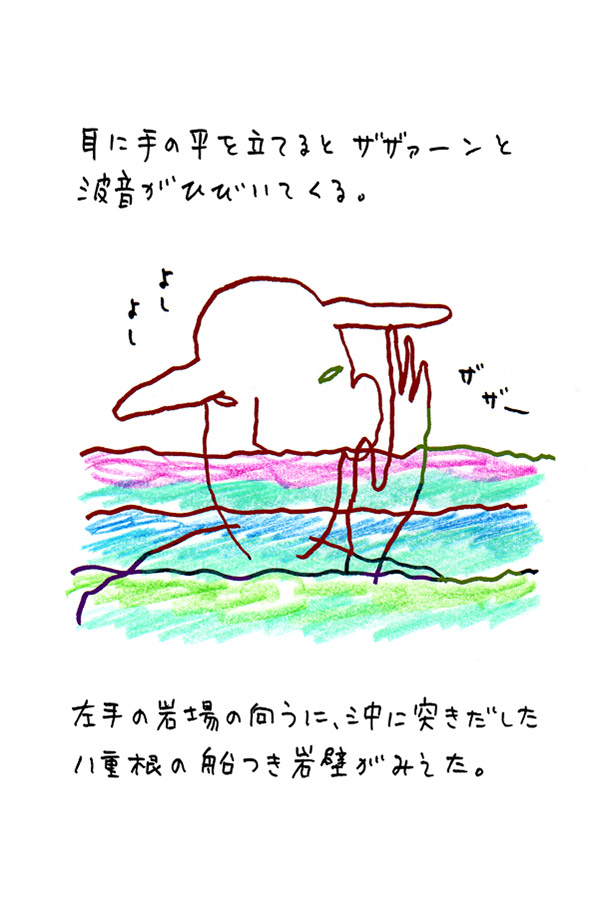 耳に手の平を立てると ザザァーンと
波音がひびいてくる。
よし
よし
ザ
ザー
左手の岩場の向うに、沖に突きだした
八重根の船つき岩壁がみえた。